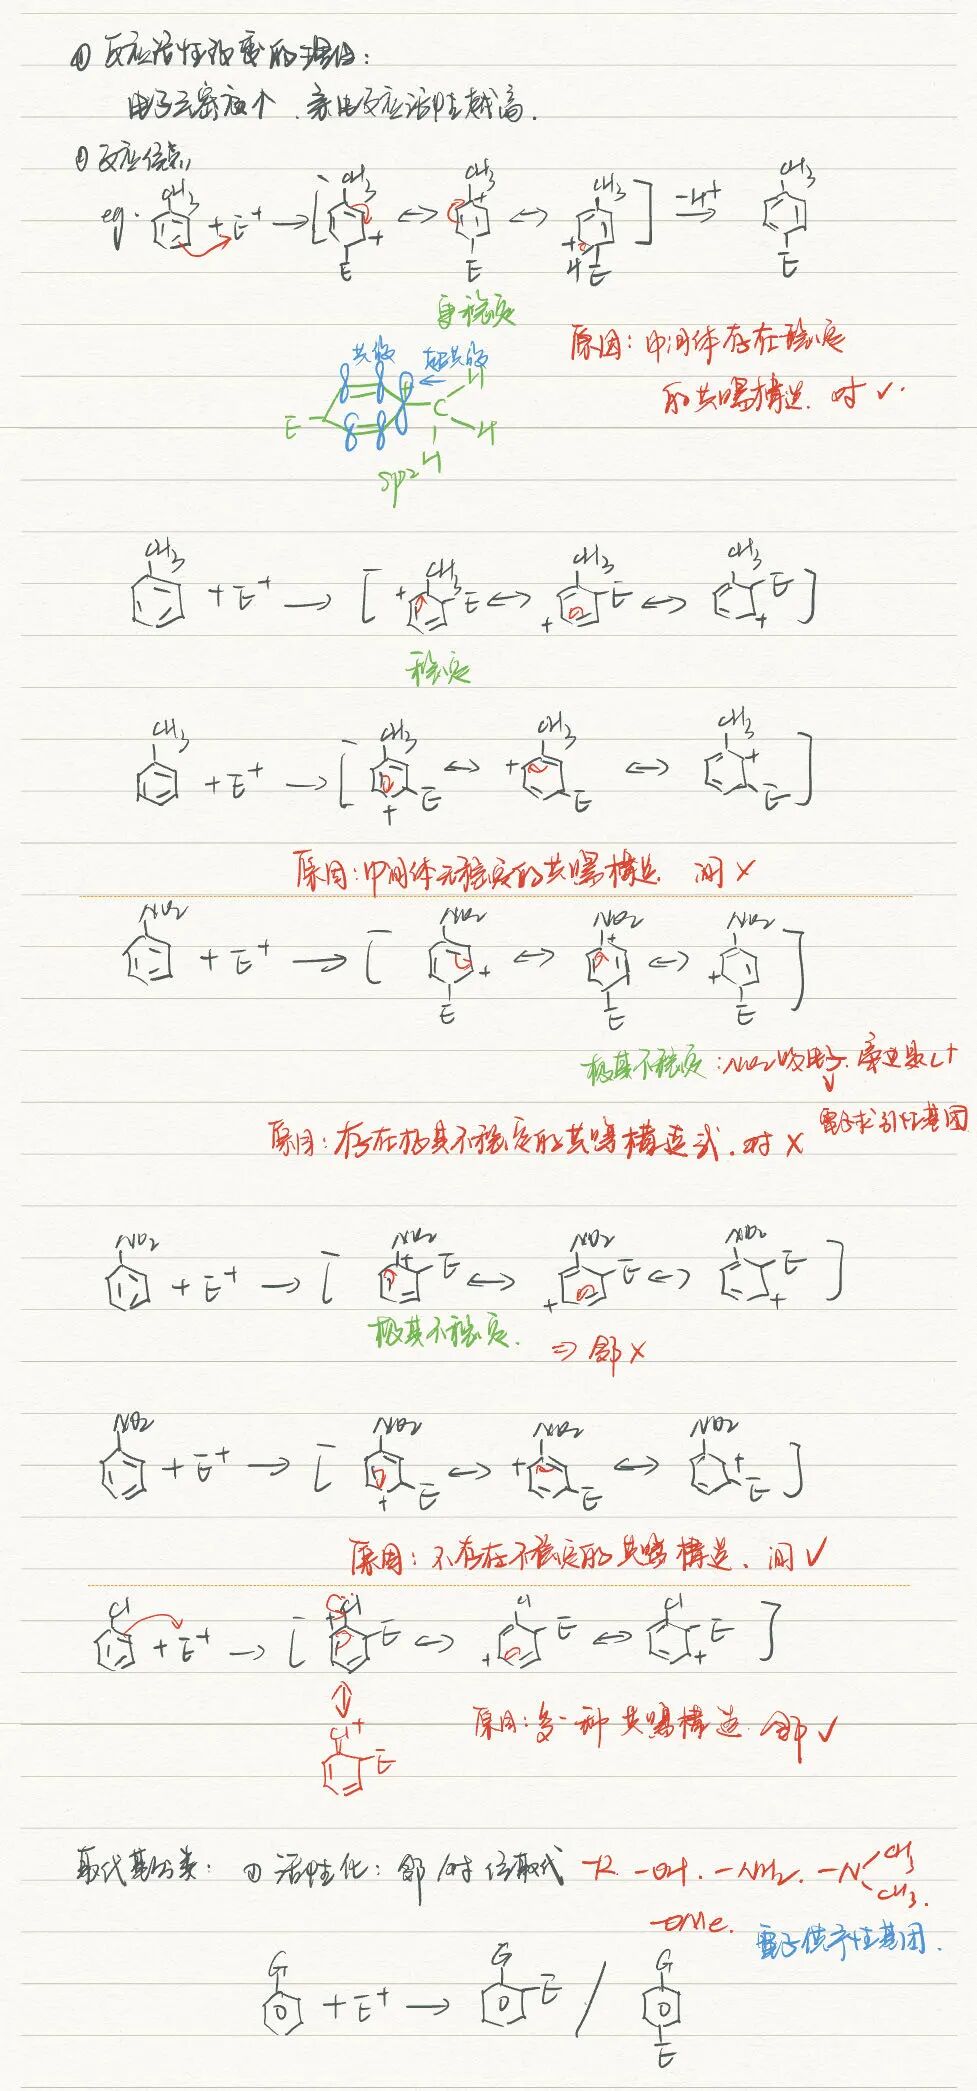 ① 反应活性改变的理由:
电子云密度↑、亲电反应活性越高.
② 反应位点
eg. CH3 + E+ → [ CH3 + E ↔ CH3 + E ↔ CH3 + H E ] -H+ → CH3 E
更稳定
共轭 超共轭
原因: 中间体存在稳定
的共鸣構造. 对 ✓.
E C H H H
sp2
CH3 + E+ → [ + CH3 E ↔ CH3 E + ↔ CH3 E + ]
稳定
CH3 + E+ → [ CH3 E + ↔ + CH3 E ↔ CH3 + E ]
原因: 中间体无稳定的共鸣構造. 间 ×
NO2 + E+ → [ NO2 + E ↔ NO2 + E ↔ NO2 + E ]
极其不稳定: NO2吸电子.
電子求引性基团
原因: 存在极其不稳定的共鸣構造式. 对 ×
NO2 + E+ → [ NO2 + E ↔ NO2 E + ↔ NO2 E + ]
极其不稳定.
⇒ 邻 ×
NO2 + E+ → [ NO2 E + ↔ + NO2 E ↔ NO2 + E ]
原因: 不存在不稳定的共鸣構造. 间 ✓
Cl + E+ → [ Cl + E ↔ Cl E + ↔ Cl E + ]
Cl+ E
原因: 多一种共鸣構造. 邻 ✓
取代基分类: ① 活性化: 邻/对位取代 -R. -OH. -NH2. -N CH3 CH3.
-OMe. 電子供予性基团.
G + E+ → G E / G E